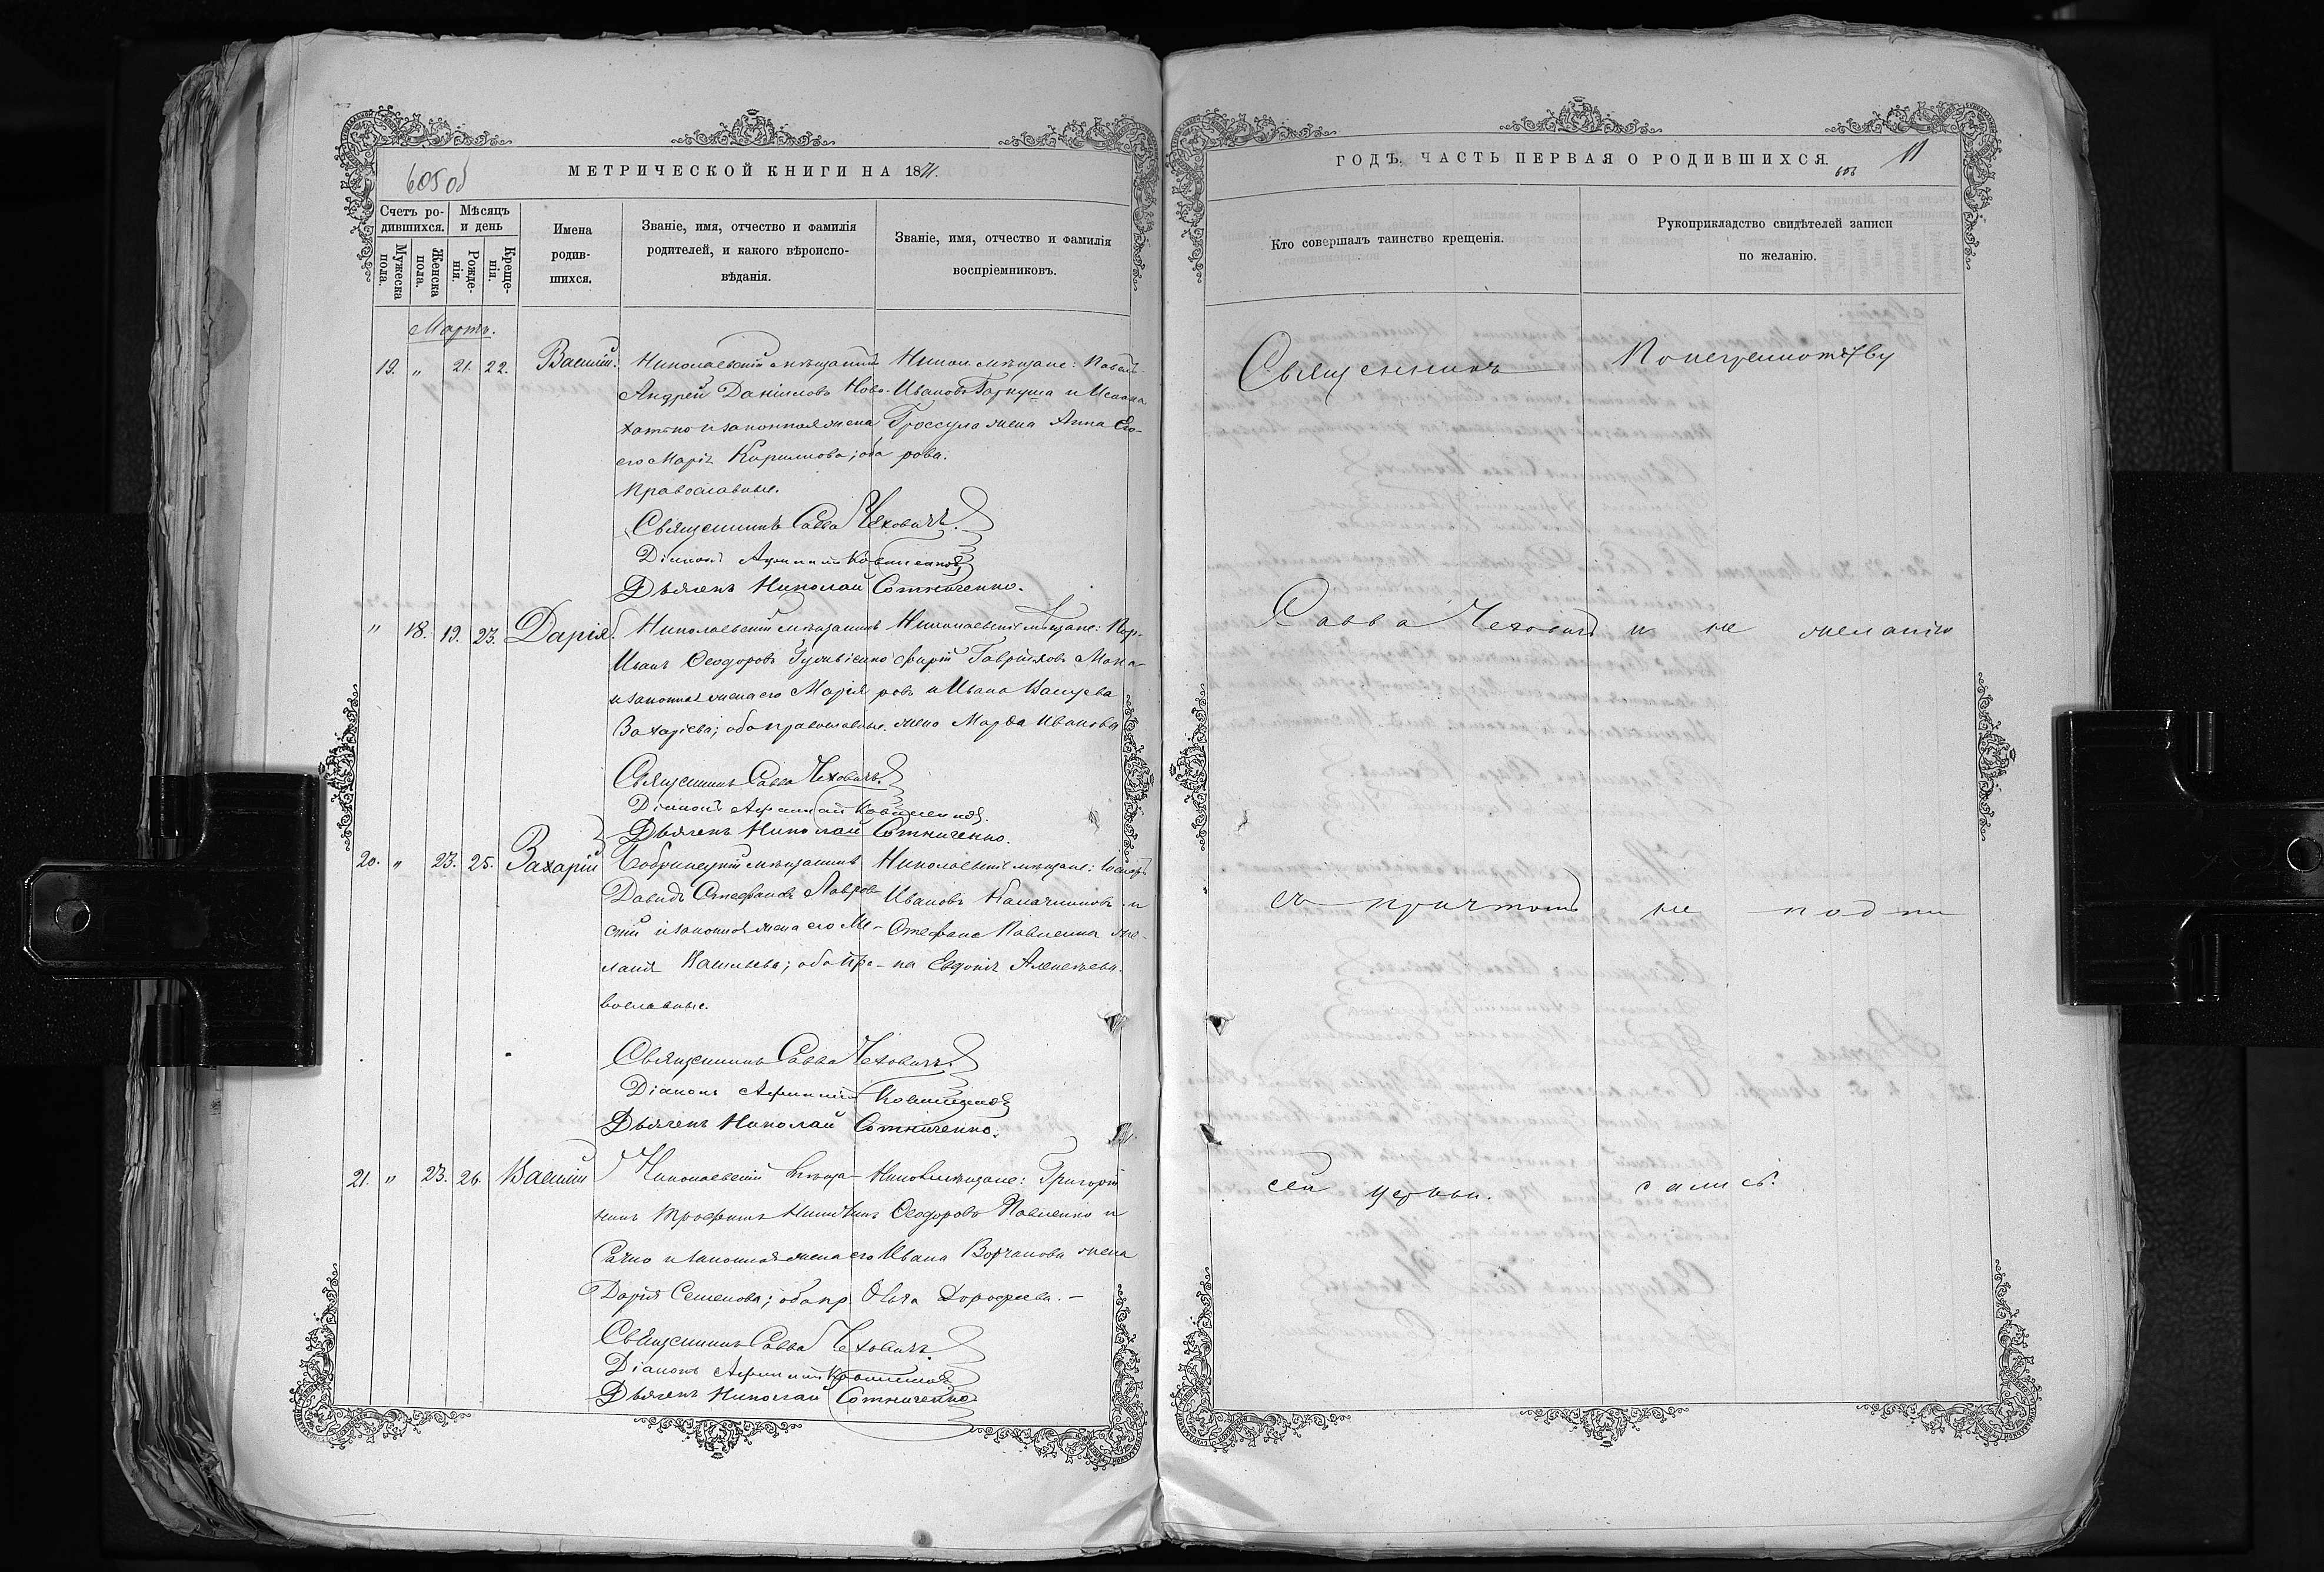 605 об
МЕТРИЧЕСКОЙ КНИГИ НА 1871.
Счетъ ро-
дившихся.
Мѣсяцъ
и день
Мужеска
пола.
Женска
пола.
Рожде-
нія.
Креще-
нія.
Имена
родив-
шихся.
Званіе, имя, отчество и фамилія
родителей, и какого вѣроиспо-
вѣданія.
Званіе, имя, отчество и фамилія
воспріемниковъ.
Мартъ.
19. " 21. 22. Василій.
Николаевскій мѣщанинъ
Андрей Даниловъ Ново-
хатько и законная жена
его Марія Кириллова; оба
православные.
Никол. мѣщане: Павелъ
Ивановъ Гаркуша и
Гроссула жена Анна Его-
рова.
Священникъ Савва Чеховичъ.
Діаконъ
Дьячекъ Николай Сотниченко.
" 18. 19. 23. Дарія.
Николаевскій мѣщанинъ
Иванъ Ѳеодоровъ
и законная жена его Марія
Захаріева; оба православные.
Николаевскіе мѣщане: Пор-
фирій Гавриловъ Мака-
ровъ и Ивана
жена Марѳа Иванова
Священникъ Савва Чеховичъ.
Діаконъ
Дьячекъ Николай Сотниченко.
20. " 23. 25. Захарій
Бобринецкій мѣщанинъ
Давидъ Стефановъ Лавров-
скій и законная жена его Ме-
ланія Васильева; оба пра-
вославные.
Николаевскіе мѣщане: Іосифъ
Ивановъ Калачниковъ и
Стефана Павленка же-
на Евдокія Алексѣева.
Священникъ Савва Чеховичъ.
Діаконъ
Дьячекъ Николай Сотниченко.
21. " 23. 26. Василій
Николаевскій мѣща-
нинъ Трофимъ Никитинъ
Сачко и законная жена его
Дарія Семенова; оба пр.
Никол. мѣщане: Григорій
Ѳеодоровъ Павленко и
Ивана Ворчакова жена
Ольга Дорофеева. –
Священникъ Савва Чеховичъ.
Діаконъ
Дьячекъ Николай Сотниченко
ГОДЪ. ЧАСТЬ ПЕРВАЯ О РОДИВШИХСЯ.
606
11
Кто совершалъ таинство крещенія.
Рукоприкладство свидѣтелей записи
по желанію.
Священникъ
По неграмотству
Савва Чеховичъ
и не желанію
съ причтомъ
не подпи
сей церкви.
сались.